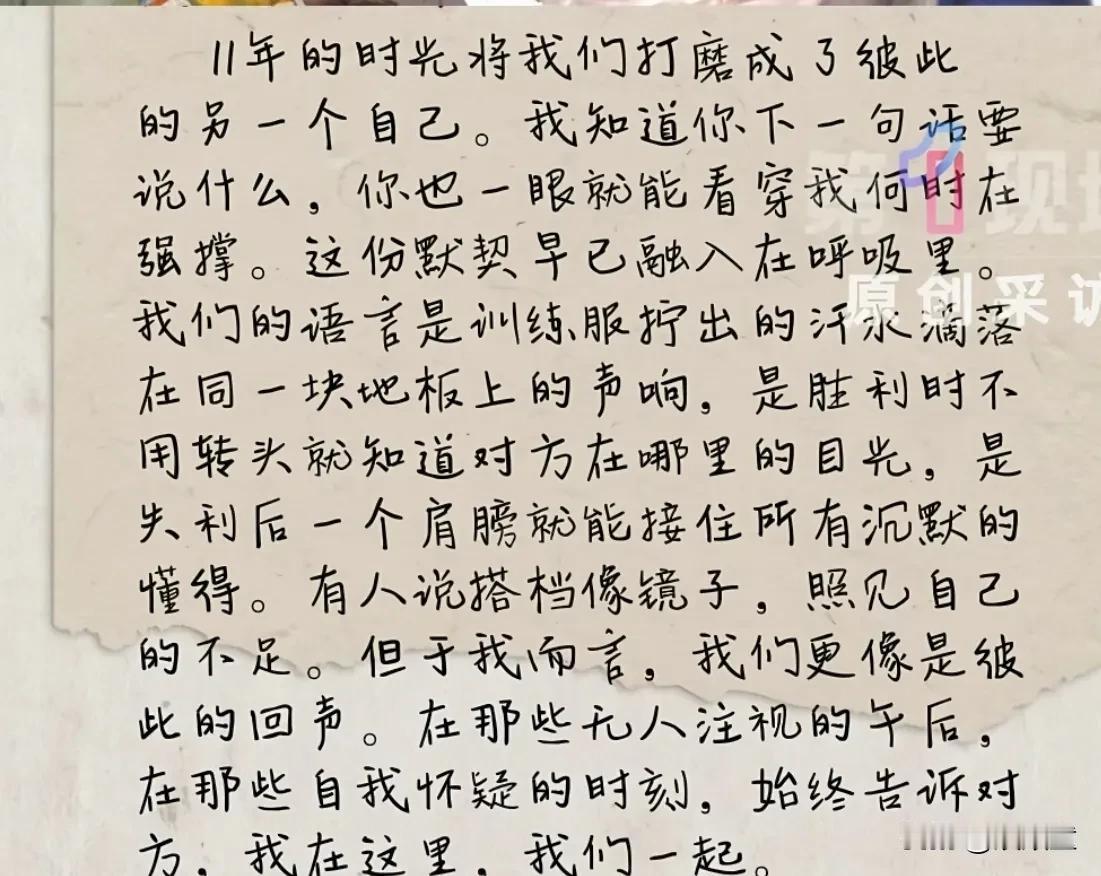 11年的时光将我们打磨成了彼此
的另一个自己。我知道你下一句话要
说什么，你也一眼就能看穿我何时在
强撑。这份默契早已融入在呼吸里。
我们的语言是训练服拧出的汗水滴落
在同一块地板上的声响，是胜利时不
用转头就知道对方在哪里的目光，是
失利后一个肩膀就能接住所有沉默的
懂得。有人说搭档像镜子，照见自己
的不足。但于我而言，我们更像是彼
此的回声。在那些无人注视的午后，
在那些自我怀疑的时刻，始终告诉对
方，我在这里，我们一起。
第1现场
原创采访